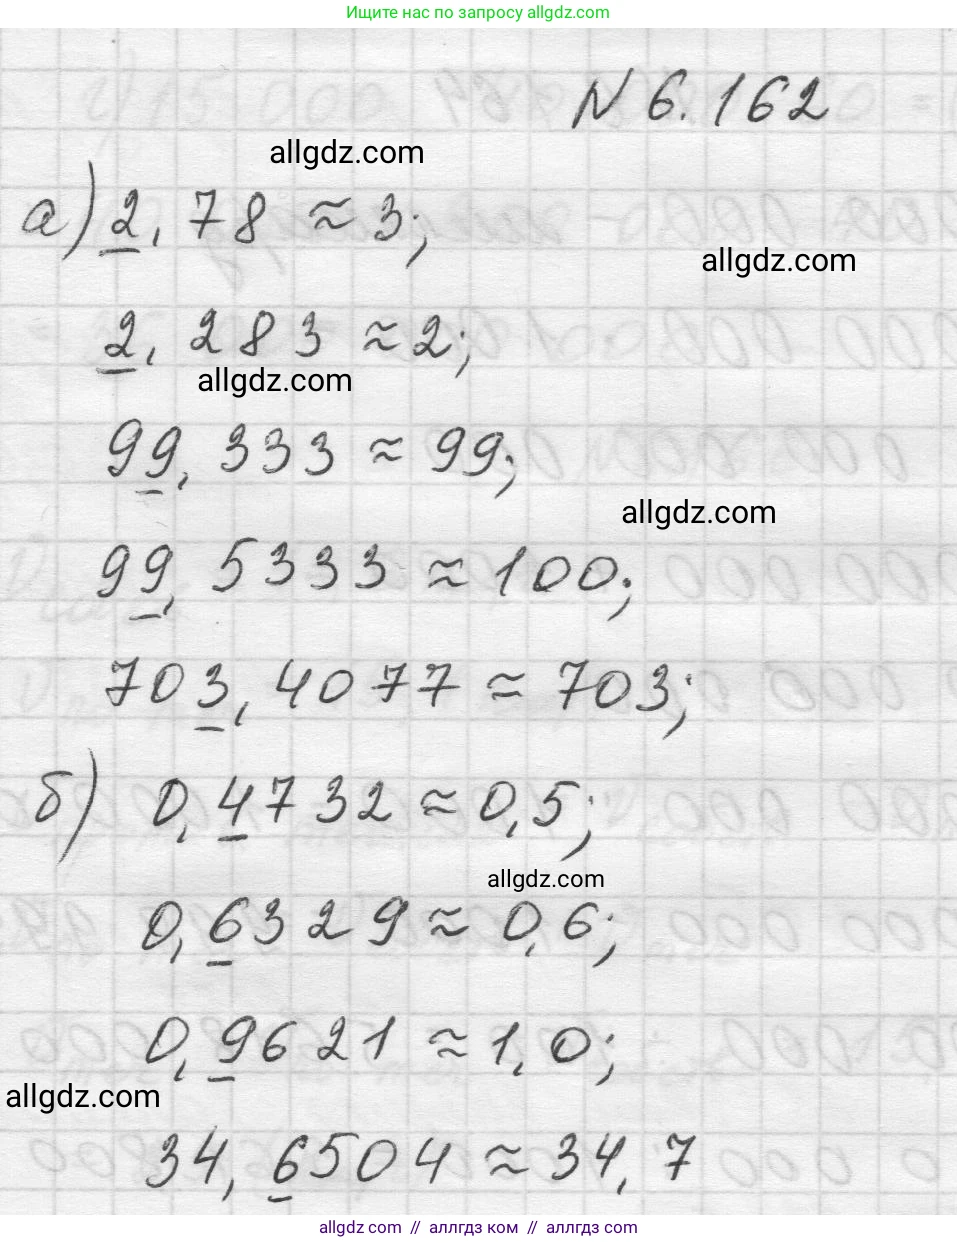 Ищите нас по запросу allgdz.com
N 6.162
allgdz.com
а) 2,78 ≈ 3;
allgdz.com
2,283 ≈ 2;
allgdz.com
99,333 ≈ 99;
allgdz.com
99,5333 ≈ 100;
703,4077 ≈ 703;
б) 0,4732 ≈ 0,5;
allgdz.com
0,6329 ≈ 0,6;
0,9621 ≈ 1,0;
allgdz.com
34,6504 ≈ 34,7
allgdz.com // аллгдз ком // аллгдз.com